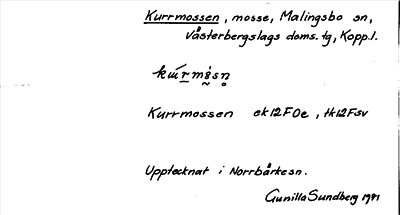 Kurrmossen, mosse, Malingsbo sn,
Västerbergslags doms. tg, Kopp. l.
Kurrmossen ek12F0e, tk12Fsv
Upptecknat i Norrbärke sn.
Gunilla Sundberg 1971